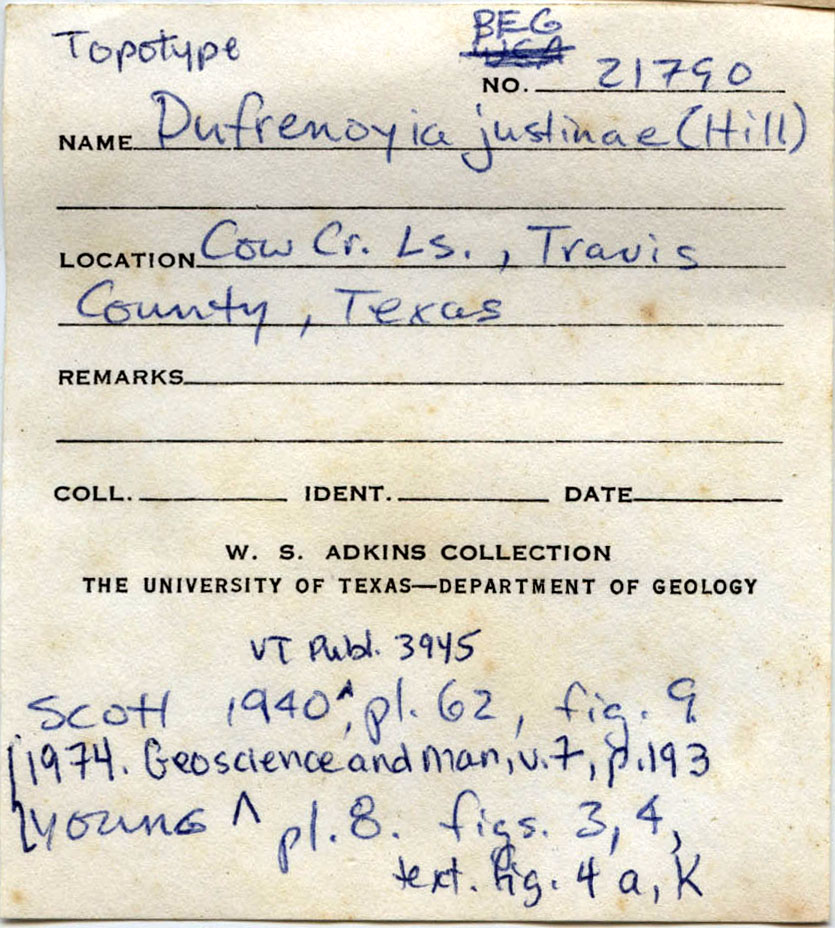 Topotype
BEG
NO. 21790
NAME Dufrenoyia justinae (Hill)
LOCATION Cow Cr. Ls., Travis
County, Texas
REMARKS
COLL. IDENT. DATE
W. S. ADKINS COLLECTION
THE UNIVERSITY OF TEXAS—DEPARTMENT OF GEOLOGY
UT Publ. 3945
Scott 1940^, pl. 62, fig. 9
1974. Geoscience and Man, v. 7, p. 193
YOUNG ^ pl. 8. figs. 3, 4,
text. fig. 4 a, K